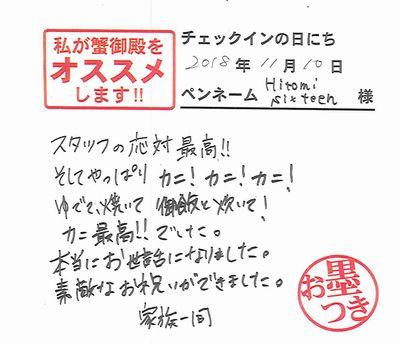 私が蟹御殿を
オススメ
します!!
チェックインの日にち
2018年11月10日
ペンネーム Hitomi sixteen 様
スタッフの応対 最高!!
そしてやっぱり カニ! カニ! カニ!
ゆでて、焼いて 御飯と炊いて!
カニ最高!! でした。
本当にお世話になりました。
素敵なお祝いができました。
家族一同
お墨つき